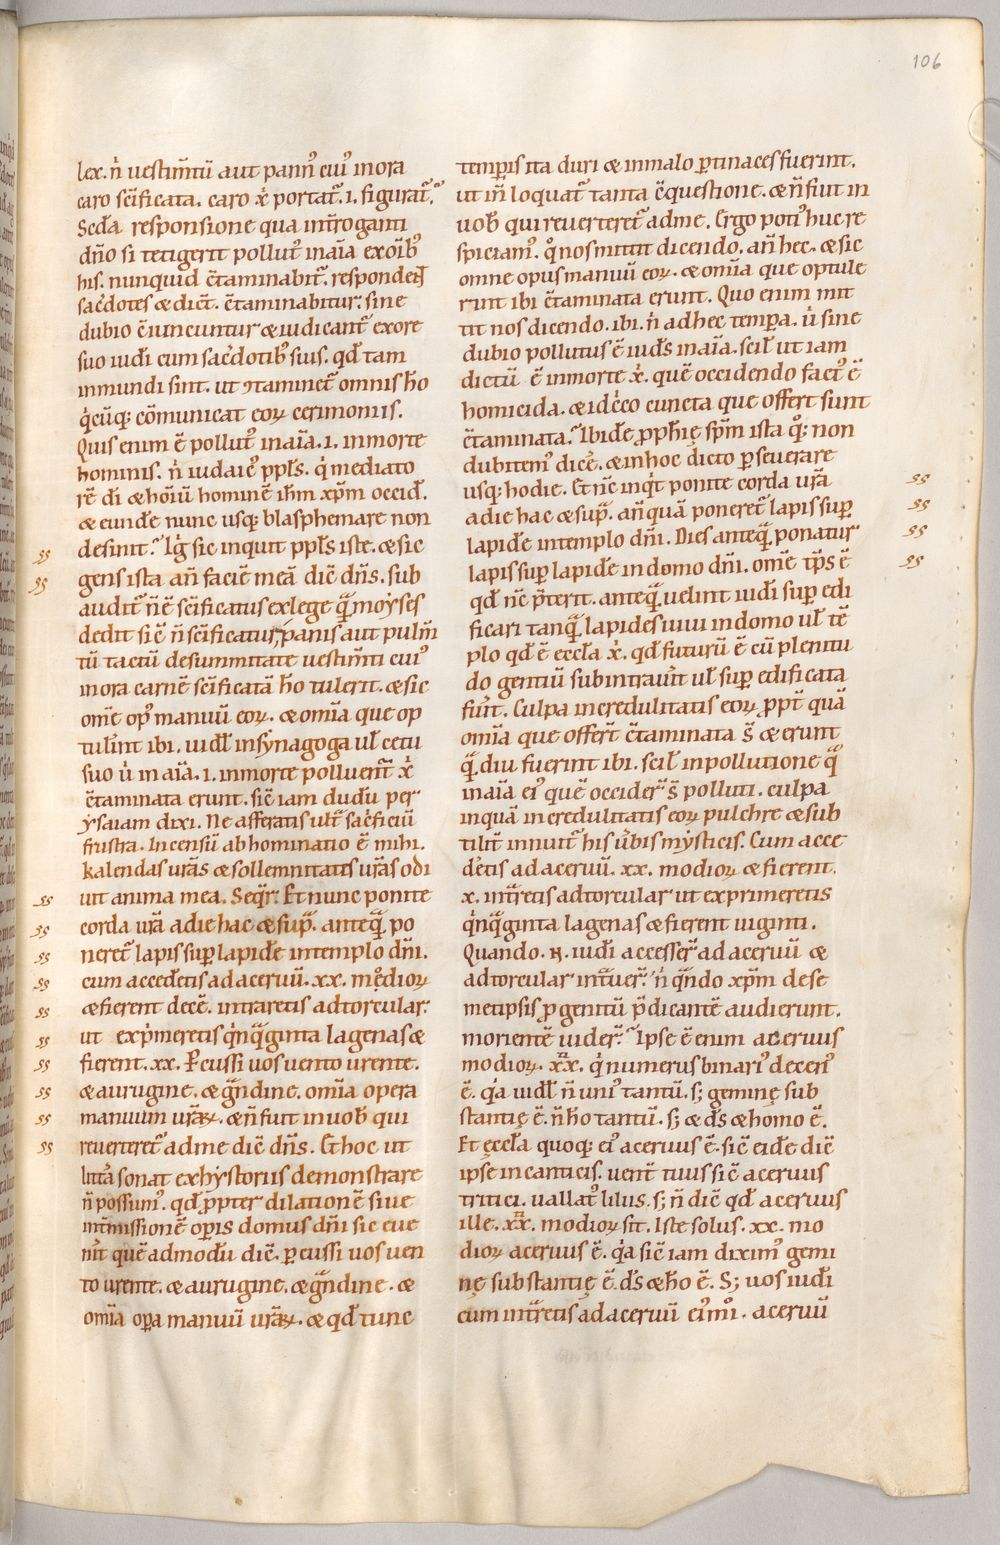 106
lex. n̄ uestim̄tū aut pann᷒ eiꝰ in ora
caro sc̄ificata. caro x̄ portat᷑. i. figurat᷑.
Scd̄a responsione qua int̄roganti
dn̄o si tetigerit pollutꝰ in aīa ex oīb᷒
his. nunquid c̄taminabit᷑. respondeɫ
sac̄dotes & dic̄t. c̄taminabitur. sine
dubio ē iuncuntur & iudicant᷑ ex ore
suo iudi cum sac̄dotib᷒ suis. qd̄ tam
inmundi sint. ut ꝯtaminet᷑ omnis ho
q̇cūq; cōmunicat eoꝝ cerimoniis.
Quis enim ē pollutꝰ in aīa. i. in morte
hominis. n̄ iudaicꝰ ppl̄s. q̇ mediato
rē di & hoīū hominē ih̄m xp̄m occid̄.
& eunde nunc usq; blasphemare non
desinit. Iḡ sic inquit ppl̄s iste. & sic
gens ista an̄ faciē meā dic̄ dn̄s. sub
audit᷑ n̄ ē sc̄ificatus ex lege quā moyses
dedit sic̄ n̄ sc̄ificatur, panis aut pulm̄
tū tactū de summitate uestim̄ti cuiꝰ
in ora carnē sc̄ificatā ho tulerit. & sic
om̄e opꝰ manuū eoꝝ. & om̄ia que op
tul̄int ibi. uidl̄ in synagoga ul̄ cetu
suo u̇ in aīa. i. in morte polluent᷑ x̄
c̄taminata erunt. sic̄ iam dudū per
ysaiam dixi. Ne afferatis ult̄ sac̄ficiū
frustra. Incensū abhominatio ē mihi.
kalendas urās & sollemnitates urās odi
uit anima mea. Seqr̄. Et nunc ponite
corda urā a die hac & sup̄. anteq̄ po
neret᷑ lapis sup lapide in templo dn̄i.
cum accedetis ad aceruū. xx. modioꝝ
& fierent decē. intraretis ad torcular.
ut exp̄meretis q̇nq̄ginta lagenas &
fierent. xx. Percussi uos uento urente.
& aurugine. & ḡndine. om̄ia opera
manuum urāꝝ. & n̄ fuit in uob̄ qui
reuerteret᷑ ad me dic̄ dn̄s. Et hoc ut
litt̄a sonat ex hystoriis demonstrare
n̄ possumꝰ. qd̄ ꝓpter dilationē siue
int̄missionē op̄is domus dn̄i sic eue
nīt quē admodū dic̄. percussi uos uen
to urente. & aurugine. & ḡndine. &
om̄ia opa manuū urāꝝ. & qd̄ tunc
temp̄is ita duri & in malo ꝑtinaces fuerint.
ut in̄ loquat᷑ tanta ē questione. & n̄ fuit in
uob̄ qui reuerteret᷑ ad me. Ergo potiꝰ huc re
spiciamꝰ. q̊ nos mittit dicendo. an̄ hec. & sic
omne opus manuū eoꝝ. & om̄ia que optule
rint ibi c̄taminata erunt. Quo enim mit
tit nos dicendo. ibi. n̄ ad hec tempora. u̇ sine
dubio pollutus ē iuds̄ in aīa. scil̄ ut iam
dictū ē in morte x̄. quē occidendo factꝰ ē
homicida. & idc̄co cuncta que offert sunt
c̄taminata. Ibide ꝓph̄ię sp̄m ista q̊: non
dubitemꝰ dic̄e. & in hoc dicto perseuerare
usq; hodie. Et nc̄ inq̇t ponite corda urā
a die hac & sup̄. an̄ quā poneret᷑ lapis sup
lapide in templo dn̄i. Dies anteq̄ ponatur
lapis sup lapide in domo dn̄i. om̄e tp̄s ē
qd̄ nc̄ p̄terit. anteq̄ uelint iudi sup edi
ficari tanq̄ lapides uiui in domo ul̄ tē
plo qd̄ ē eccl̄a x̄. qd̄ futurū ē cū plenitu
do gentiū subintrauīt ul̄ sup edificata
fuīt. Culpa incredulitatis eoꝝ ꝓpt̄ quā
om̄ia que offert᷑ c̄taminata s̄ & erunt
q̄ diu fuerint ibi. scil̄ in pollutione q̄
in aīa eiꝰ quē occider̄ s̄ polluti. culpa
inquā incredulitatis eoꝝ pulchre & sub
tilit᷑ innuit᷑ his u̇bis mysticis. Cum acce
detis ad aceruū. xx. modioꝝ & fierent.
x. intr̄etis ad torcular ut exprimeretis
q̇nq̄ginta lagenas & fierent uiginti.
Quando. N. iudi accesser̄ ad aceruū &
ad torcular int̄uer̄. n̄ q̄ndo xp̄m de se
met ipsis ꝓ gentiū p̄dicantē audierunt.
morientē uider̄. Ipse ē enim aceruus
modioꝝ. xx. q̇ numerus binariꝰ deceriꝰ
ē. q̇a uidl̄ n̄ uniꝰ tantū. s; geminę sub
stantię ē. n̄ ho tantū. s; & ds̄ & homo ē.
Et eccl̄a quoq; eiꝰ aceruus ē. sic̄ eide dic̄
ipse in canticis. uent᷑ tuus sic̄ aceruus
tritici. uallatꝰ liliis. s; n̄ dic̄ qd̄ aceruus
ille. xx. modioꝝ sit. Iste solus. xx. mo
dioꝝ aceruus ē. q̇a sic̄ iam diximꝰ gemi
nę substantię ē. ds̄ & ho ē. S; uos iudi
cum intr̄etis ad aceruū eiꝰmꝰi. aceruū